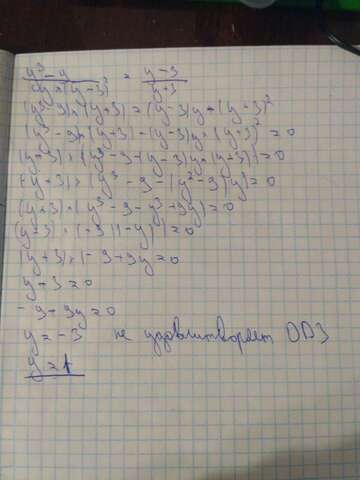 y³-9 / y×(y+3)² = y-3 / y+3
(y³-9)×(y+3)=(y-3)y×(y+3)²
(y³-9)×(y+3)-(y-3)y×(y+3)²=0
(y+3)×(y³-9-(y-3)y×(y+3))=0
(y+3)×(y³-9-(y²-9)y)=0
(y+3)×(y³-9-y³+9y)=0
(y+3)×(-9(1-y))=0
(y+3)×(-9+9y=0
y+3=0
-9+9y=0
y=-3 не удовлитворяет ОДЗ
y=1